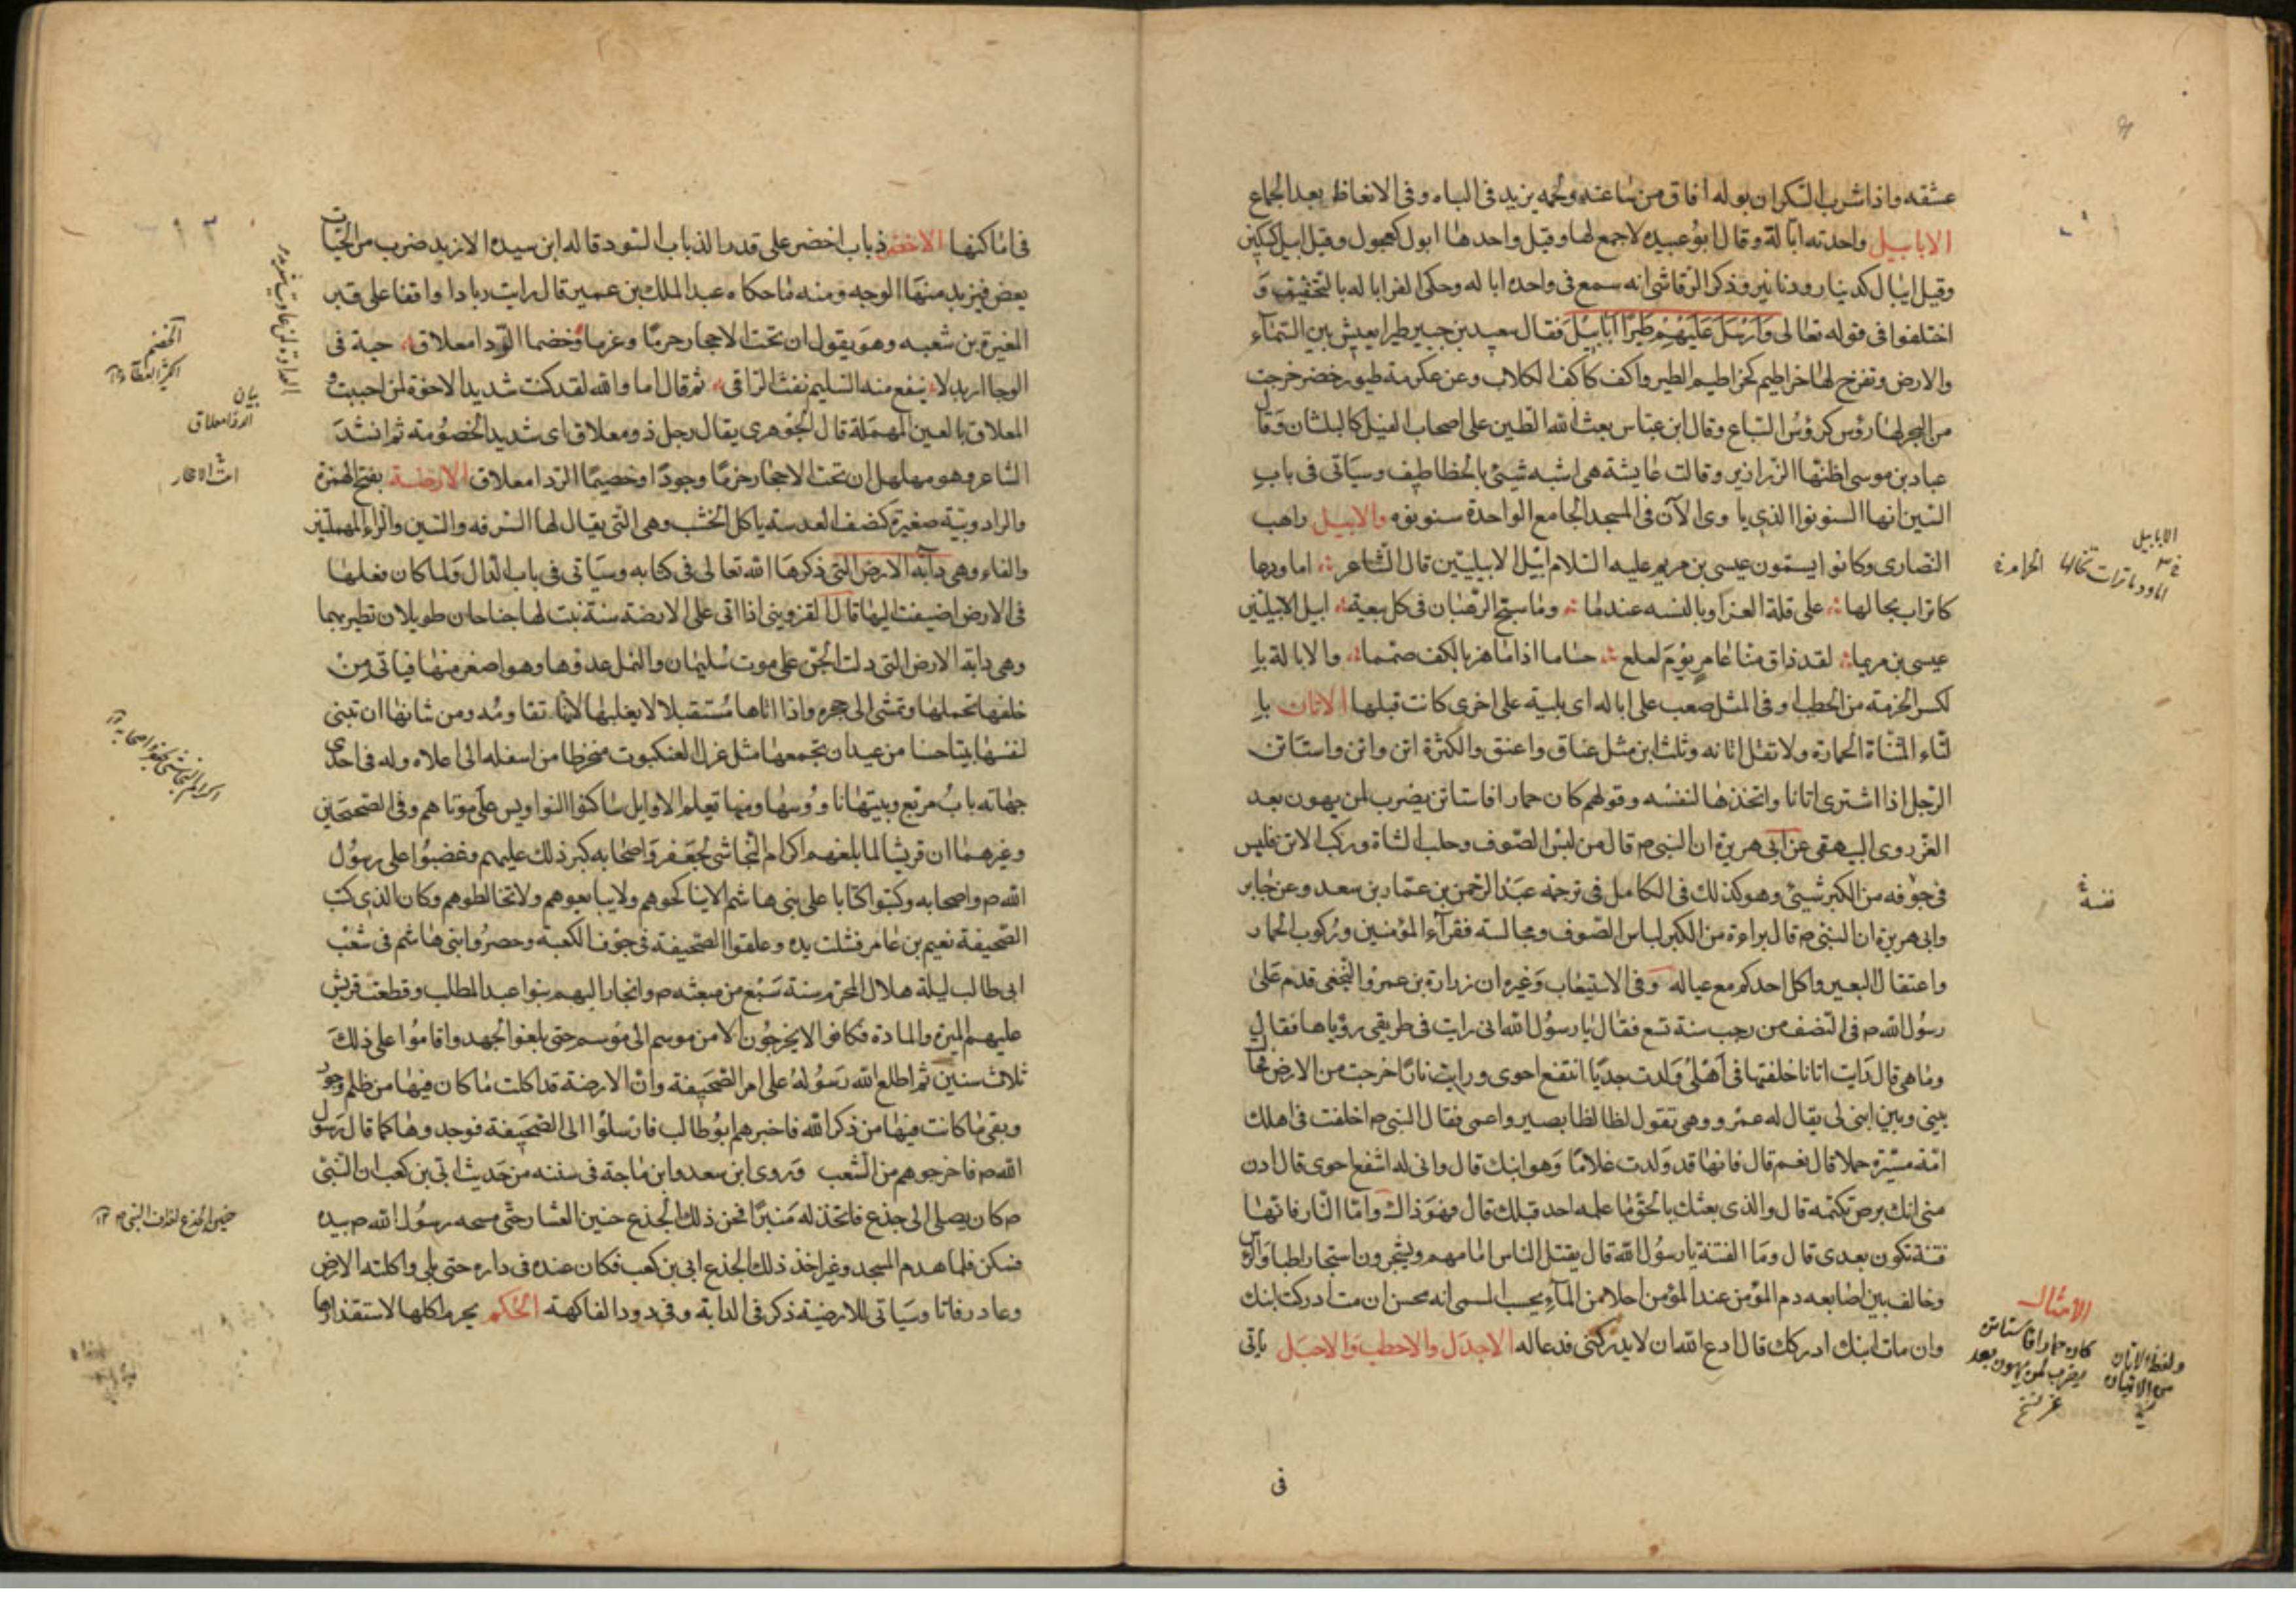 عشقه واذا شرب السكران بوله افاق من ساعته ولحمه يزيد فى الباه وفى الانعاظ بعد الجماع
الابابيل واحدته ابالة وقال ابو عبيده لا جمع لها وقيل واحدها ابول كعجول وقيل ابيل كسكين
وقيل ايبال كدينار ودنانير وذكر الرقاشى انه سمع فى واحده اباله وحكى الفرا اباله بالتخفيف و
اختلفوا فى قوله تعالى وَاَرْسَلَ عَلَيْهِمْ طَيْرًا اَبَابِيْلَ فقال سعيد بن جبير طير ايعيش بين السّماء
والارض وتفرخ لها خراطيم كخراطيم الطير واكف كاكف الكلاب وعن عكرمة طيور خضر خرجت
من البحر لها رؤس كرؤس السّباع وقال ابن عبّاس بعث الله الطين على اصحاب الفيل كالبلشان وقال
عباد بن موسى اظنّها الزّرازير وقالت عايشة هى اشبه شيئ بالخطاطيف وسيأتى فى باب
السّين انها السنونوا الذى ياوى الآن فى المسجد الجامع الواحدة سنونوه والابيل راهب
النّصارى وكانوا يسمّون عيسى بن مريم عليه السّلام ابيل الابيليين قال الشاعر اما ودما
كاتراب بحالها على قلة العزاوبالنسه عندما وما سبّح الرّهبان فى كل بيعة ابيل الابيلين
عيسى بن مريما لقد ذاق منّا عامر يوم لعلع حساما اذا ما هز بالكف صمما والابالة با
لكسر الحزمة من الحطب وفى المثل صعب على اباله اى بلية على اخرى كانت قبلها الاتان با
لتاء المثنّاة الحمارة ولا تقل اتانه وثلث اتن مثل عناق واعنق والكثرة اتن واتن واستاتن
الرّجل اذا اشترى اتانا واتخذها لنفسه وقولهم كان حمارا فاستاتن يضرب لمن يهون بعد
العزّ روى البيهقى عن ابى هريرة ان النبى م قال من لبس الصّوف وحلب الشاة وركب الاتن فليس
فى جوفه من الكبر شيئ وهو كذلك فى الكامل فى ترجمه عبد الرّحمن بن عمّار بن سعد وعن جابر
وابى هريرة ان النبىّ م قال براءة من الكبر لباس الصّوف ومجالسة فقرآء المؤمنين وركوب الحمار
واعتقال البعير واكل احدكم مع عياله وفى الاستيعاب وغيره ان زرارة بن عمرو النخعى قدم على
رسول الله م فى النّصف من رجب سنة تسع فقال يا رسول الله انى رايت فى طريقى رؤيا هافقال
وما هى قال رايت اتانا خلفتها فى اهلى ولدت جديّا اسفع احوى ورايت نارًا خرجت من الارض فحا
بينى وبين ابنى لى يقال له عمرو وهى تقول لظا لظا بصير واعمى فقال النبى م اخلفت فى اهلك
امّة مسرّة حملا قال نعم قال فانها قد ولدت غلامًا وهو ابنك قال وانى له اسفع احوى قال ادن
منى ابك برص تكتمه قال والذى بعثك بالحق ما علمه احد قبلك قال فهو ذاك وامّا النّار فانها
فتنة تكون بعدى قال وما الفتنة يا رسول الله قال يقتل الناس امامهم ويشتجرون اشتجار اطباق الرأس
وخالف بين اصابعه دم المؤمن عند المؤمن احلا من المآء يحسب المسئ انه محسن ان مت ادركت ابنك
وان مات ابنك ادركك قال ادع الله ان لا يدركنى فدعا له الاجدل والاحطب والاحيل ياتى
فى
الابابيل
الامثال
كان حمارا فاستاتن
يضرب لمن يهون بعد
عز
ولفظ الاتان
فتنة
فى اماكنها الاخضر ذباب اخضر على قدر الذباب السود قاله ابن سيده الاربد ضرب من الحيّات
يعض فيزبد منها الوجه ومنه ما حكاه عبد الملك بن عمير قال رايت زيادا واقفا على قبر
المغيرة بن شعبه وهو يقول ان تحت الاحجار حزمًا وعزمًا وخصما الدّ ذا معلاق حية فى
الوجا اربد لا ينفع منه السّليم نفث الرّاقى ثم قال اما والله لقد كنت شديد الاخوة لمن احببت و
المعلاق بالعين المهملة قال الجوهرى يقال رجل ذو معلاق اى شديد الخصومة ثم انشد
الشاعر وهو مهلهل ان تحت الاحجار حزمًا وجودًا وخصيمًا الدّ ذا معلاق الارضة بفتح الهمزة
والراد ويبّة صغيرة كنصف العدسة ياكل الخشب وهى التى يقال لها السّرفه والسّين والراء المهملتين
والفاء وهى دآبّة الارض التى ذكرها الله تعالى فى كتابه وسيأتى فى باب الدّال ولما كان فعلها
فى الارض اضيفت اليها قال القزوينى اذا اتى على الارضة سنة نبت لها جناحان طويلان تطير بهما
وهى دابّة الارض التى دلت الجن على موت سليمان والنمل عدوّها وهو اصغر منها فياتى من
خلفها تحملها وتمشى الى جحره واذا اتاها مستقبلا لا يغلبها لانّها تقاومه ومن شانها ان تبنى
لنفسها بيتا حسنا من عيدان تجمعها مثل غزل العنكبوت منخرطا من اسفله الى اعلاه وله فى احدى
جهاته باب مربّع وبيتها ناووسها ومنها تعلم الاوايل ساكنوا النواويس على موتاهم وفى الصّحيحين
وغيرهما ان قريشا لما بلغهم اكرام النّجاشى لجعفر واصحابه كبر ذلك عليهم وغضبوا على رسول
الله م واصحابه وكتبوا كتابا على بنى هاشم الا يناكحوهم ولا يبايعوهم ولا تخالطوهم وكان الذى كتب
الصّحيفة نعيم بن عامر فشلت يده وعلقوا الصّحيفة فى جوف الكعبة وحصروا بنى هاشم فى شعب
ابى طالب ليلة هلال المحرّم سنة سبع من مبعثه م وانحاز اليهم بنوا عبد المطلب وقطعت قريش
عليهم الميرة والمادة فكانوا لا يخرجون الا من موسم الى موسم حتى بلغوا الجهد واقاموا على ذلك
ثلاث سنين ثم اطلع الله رسوله على امر الصّحيفة وان الارضة قد اكلت ما كان فيها من ظلم وجور
وبقى ما كانت فيها من ذكر الله فاخبرهم ابو طالب فارسلوا الى الصّحيفة فوجدوها كما قال رسول
الله م فاخرجوهم من الشعب وروى ابن سعد وابن ماجة فى سننه من حديث ابى بن كعب ان النّبىّ
م كان يصلى الى جذع فاتخذ له منبرًا فحن ذلك الجذع حنين العشار حتّى مسحه رسول الله م بيده
فسكن فلما هدم المسجد وغير اخذ ذلك الجذع ابى بن كعب فكان عنده فى داره حتى بلى واكلته الارض
وعاد رفاتا وسيأتى للارضة ذكر فى الدابة وفى دود الفاكهة الحكم يحرم اكلها لاستقذارها
بيان
الدّ ذا معلاق